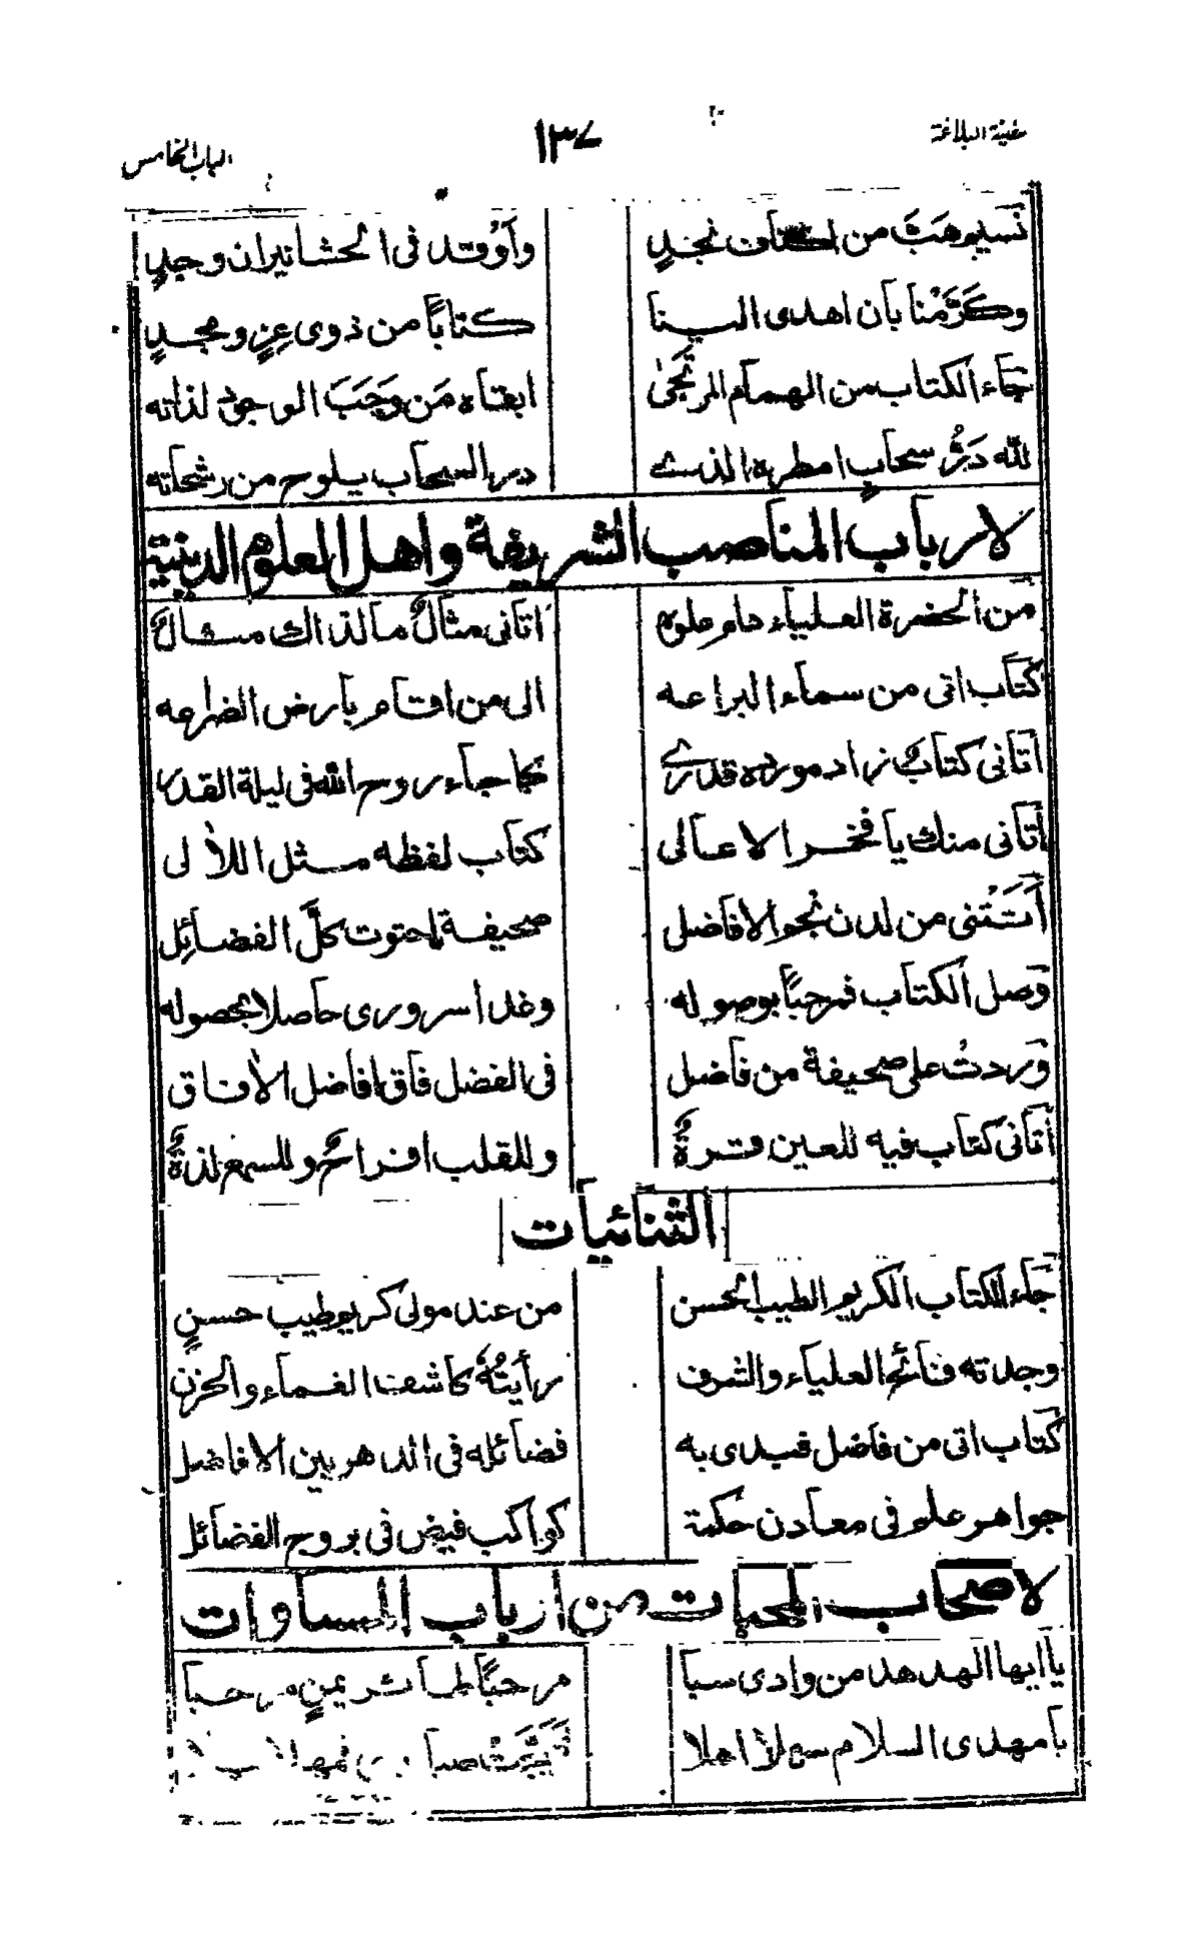 سفينة البلاغة ١٣٧ الباب الخامس
نسيم هبّ من اكناف نجدٍ وأوقد في الحشا نيران وجدٍ
وكرّمنا بان اهدى الينا كتاباً من ذوى عزٍ ومجدٍ
جاء الكتاب من الهمام المرتجى ابقاه من وجب الوجود لذاته
لله درّ سحابٍ امطره الذى درر السحاب يلوح من رشحاته
لارباب المناصب الشريفة واهل العلوم الدينية
من الحضرة العلياء دام علوه اتانى مثالٌ ما لذاك مثالٌ
كتاب اتى من سماء البراعه الى من اقام بارض الضراعه
اتانى كتابٌ زاد مورده قدرى كما جاء روح الله فى ليلة القدر
اتانى منك يا فخر الاعالى كتاب لفظه مثل اللاٰلى
أتتنى من لدن نحو الافاضل صحيفة احتوت كلّ الفضائل
وصل الكتاب فمرحباً بوصوله وغدا سرورى حاصلا بحصوله
وردتْ على صحيفة من فاضل فى الفضل فاق افاضل الاٰفاق
أتانى كتاب فيه للعين قرةٌ وللقلب افراحٌ وللسمع لذةٌ
الثنائيات
جاء الكتاب الكريم الطيب الحسن من عند مولى كريم طيب حسنٍ
وجدته فائح العلياء والشرف رأيتُهُ كاشف الغماء والحزن
كتاب اتى من فاضل قيدى به فضائله فى الدهر بين الافاضل
جواهر علم فى معادن حكمة كواكب فيض فى بروج الفضائل
لاصحاب المحبات من ارباب المساوات
يا ايها الهدهد من وادى سبا مرحبًا طائر يمنٍ مرحبا
با مهدى السلام اهلا